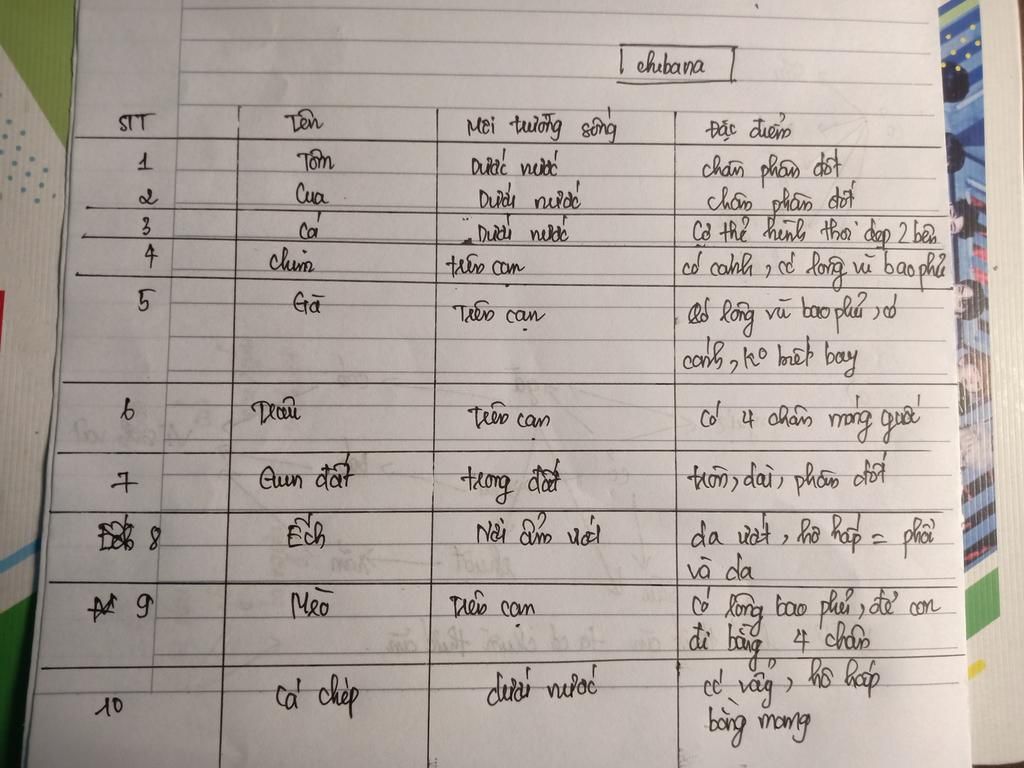 chubana
STT Tên Môi trường sống Đặc điểm
1 Tôm Dưới nước chân phân đốt
2 Cua Dưới nước chân phân đốt
3 Cá Dưới nước Cơ thể hình thoi dẹp 2 bên
4 chim trên cạn có cánh, có lông vũ bao phủ
5 Gà Trên cạn có lông vũ bao phủ, có
cánh, ko biết bay
6 Trâu trên cạn Có 4 chân móng guốc
7 Giun đất trong đất tròn, dài, phân đốt
8 Ếch Nơi ẩm ướt da ướt, hô hấp = phổi
và da
9 Mèo Trên cạn Có lông bao phủ, đẻ con
đi bằng 4 chân
10 Cá chép dưới nước có vẩy, hô hấp
bằng mang